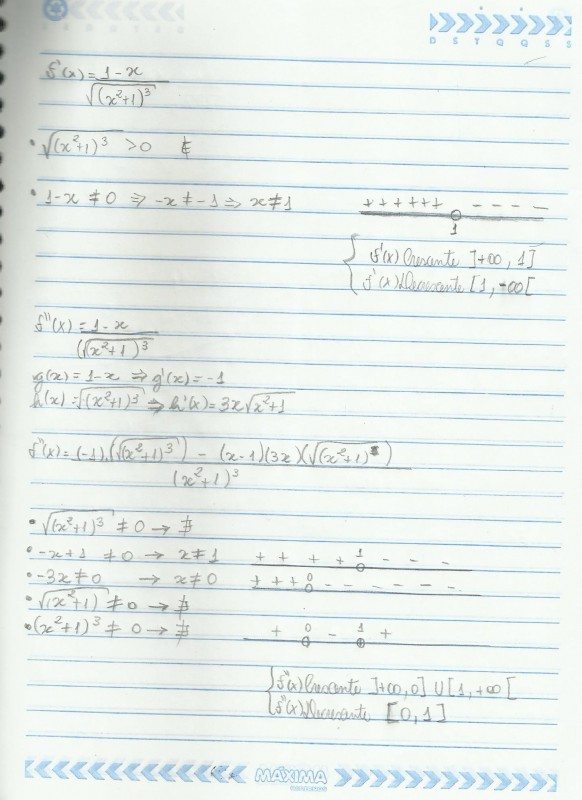 D S T Q Q S S
f'(x) = 1-x / √(x²+1)³
• √(x²+1)³ > 0 ∄
• 1-x ≠ 0 ⇒ -x ≠ -1 ⇒ x ≠ 1
+ + + + + + - - - -
1
{ f'(x) Crescente ]+∞, 1]
f'(x) Decrescente [1, +∞[
f''(x) = 1-x / (√(x²+1)³
g(x) = 1-x ⇒ g'(x) = -1
h(x) = √(x²+1)³ ⇒ h'(x) = 3x√x²+1
f''(x) = (-1).(√(x²+1)³) - (x-1)(3x)(√(x²+1)) / (x²+1)³
• √(x²+1)³ ≠ 0 → ∄
• -x+1 ≠ 0 → x ≠ 1 + + + + 1 - - -
• -3x ≠ 0 → x ≠ 0 + + + 0 - - - - - -
• √(x²+1) ≠ 0 → ∄
• (x²+1)³ ≠ 0 → ∄ + 0 - 1 +
{ f''(x) Crescente ]+∞, 0] U [1, +∞[
f''(x) Decrescente [0, 1]
MÁXIMA